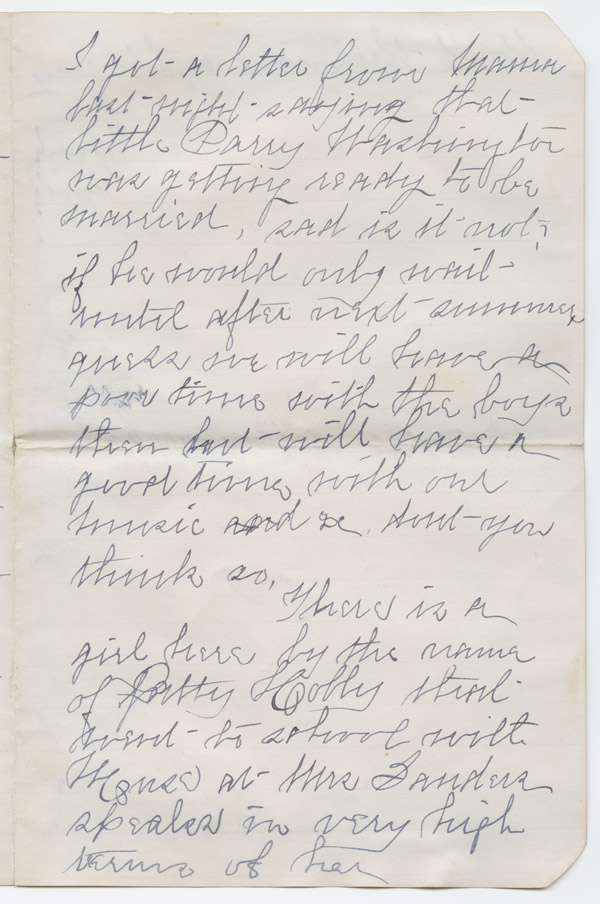 I got a letter from Mama
last night saying that
little Parry Washington
was getting ready to be
married, sad is it not,
if he would only wait
until after next summer
guess we will have a
poor time with the boys
then but will have a
good time with our
music and c. dont you
think so,
There is a
girl here by the name
of Patty Holly that
went to school with
at Mrs Sanders
speaks in very high
terms of her